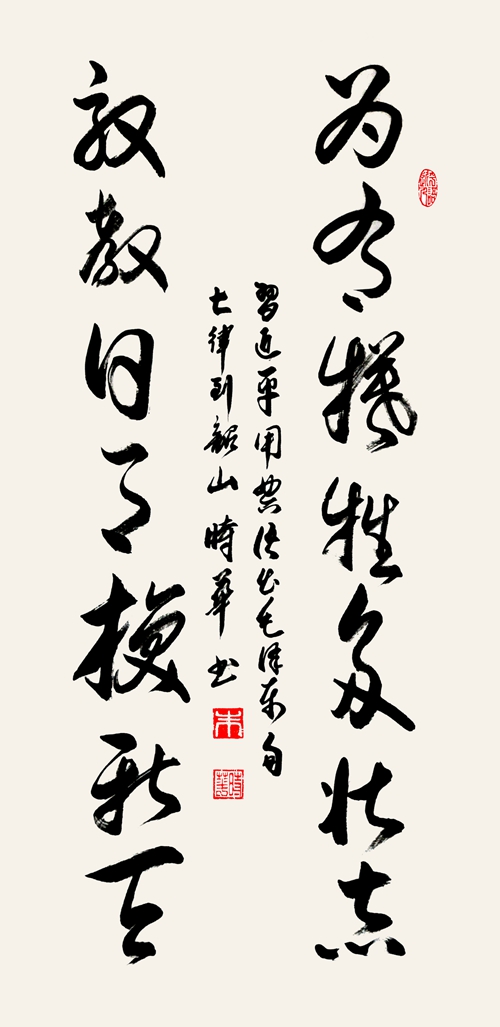 为有犧牲多壮志
敢教日月换新天
習近平用典语出毛泽东自
七律到韶山 時華书
朱
時華